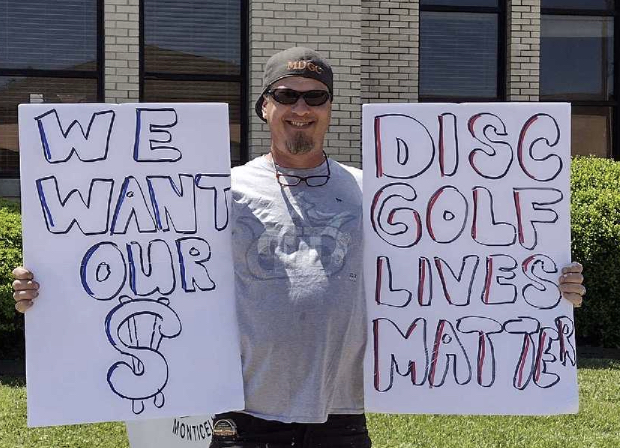 MDGC
WE
WANT
OUR
$
DISC
GOLF
LIVES
MATTER
MONTICE